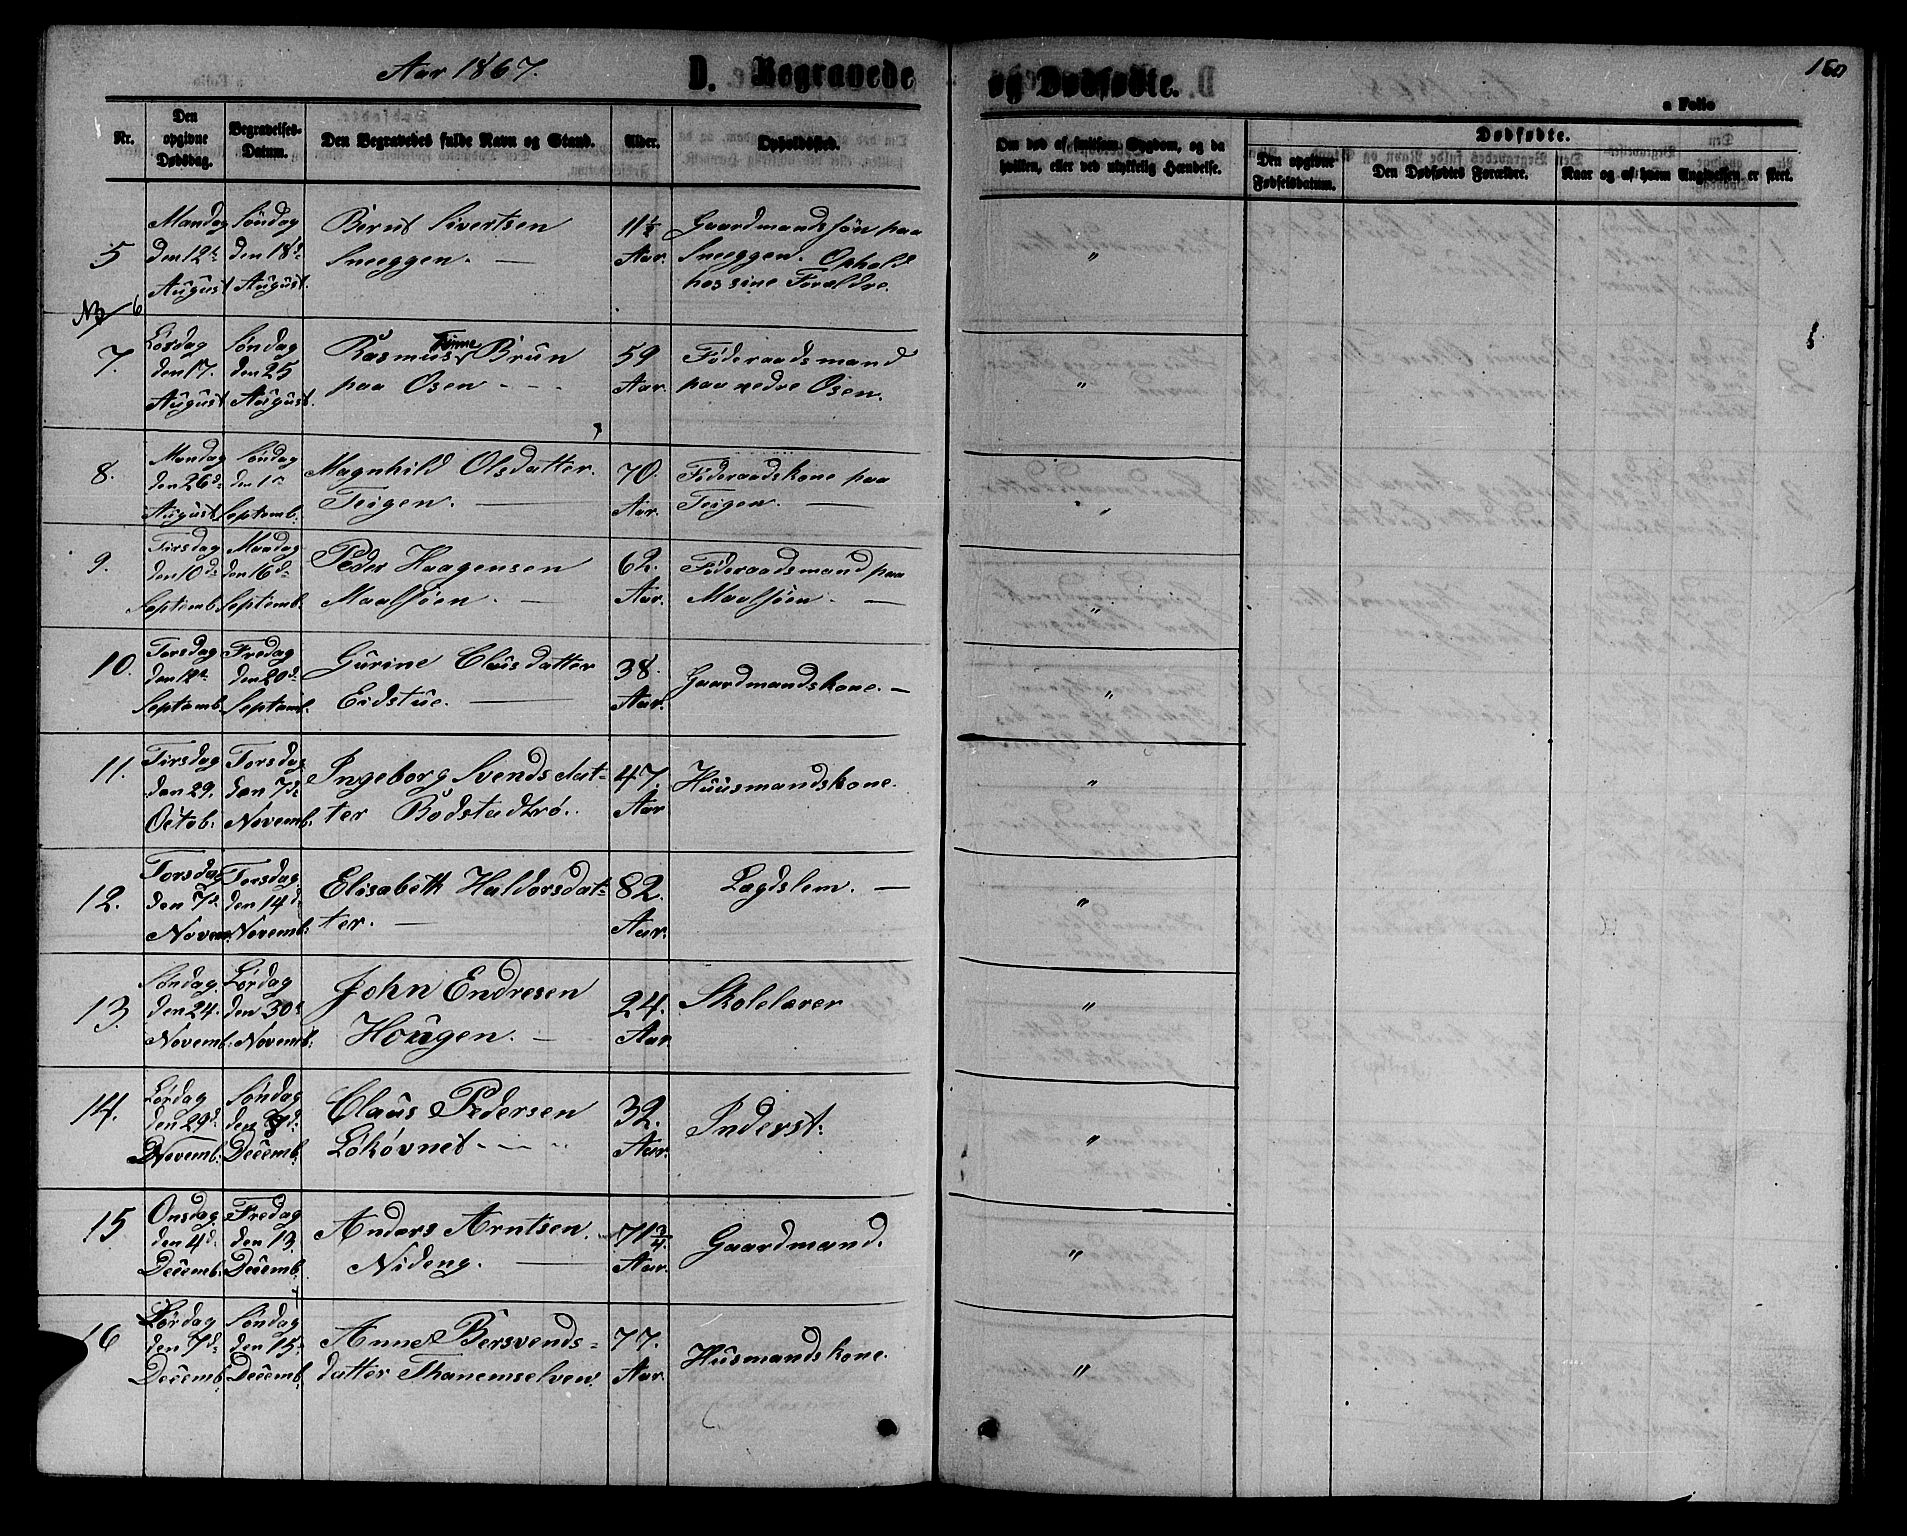 Aar 1867. D. Begravede og Dødfødte. 150
a Folio
Nr. Den opgivne Dødsdag. Begravelses-Datum. Den Begravedes fulde Navn og Stand. Alder. Opholdssted. Om død af smitsom Sygdom, og da hvilken, eller ved ulykkelig Hændelse. Dødfødte.
Den opgivne Fødselsdatum. Den Dødfødtes Forældre. Naar og af hvem Angivelsen er skeet.
Mandag Søndag Bernt Sivertsen 11½ Gaardmandssøn paa
5 den 12te den 18de Sneeggen. — Aar. Sneeggen. Ophold "
August August. hos sine Forældre.
NB 6
7. Løsdag Søndag Rasmus Finne Brun 59 Føderaadsmand
den 17. den 25 paa Øsen - - - Aar. paa nedre Øsen. "
August August.
8. Mandag Søndag Magnhild Olsdatter. 70. Føderaadskone paa
den 26de den 1ste Teigen. — Aar. Teigen. — "
August Septemb:
9. Tirsdag Mandag Peder Haagensen 62. Føderaadsmand paa
den 10de den 16de Maalsøen. — Aar. Maalsøen. — "
Septemb. Septemb.
10. Torsdag Fredag Gurine Clausdatter 38. Gaardmandskone. — "
den 12te den 20de Eidstue. — Aar.
Septemb. Septemb.
11. Tirsdag Torsdag Ingeborg Svendsdat- 47. Huusmandskone. "
den 29. den 7de ter Bodstadtrø. Aar
Octob: Novemb:
12. Torsdag Torsdag Elisabeth Haldorsdat- 82. Lagdslem. — "
den 7de den 14de ter. — Aar.
Novem. Novemb:
13. Søndag Lørdag John Endresen 24. Skolelærer "
den 24. den 30te Hougen. — Aar.
Novemb: Novemb:
14. Lørdag Søndag Claus Pedersen 32. Inderst: "
den 29de den Løkøvnet - - - Aar.
Novemb: Decemb:
15 Onsdag Fredag Anders Arntsen. 71¾ Gaardmand. "
den 4de den 13. Nideng. — Aar.
Decemb: Decemb.
16 Lørdag Søndag Anne Bersvends- 77. Husmandskone. "
den 7de den 15de datter Thanemselven Aar.
Decemb. Decemb.